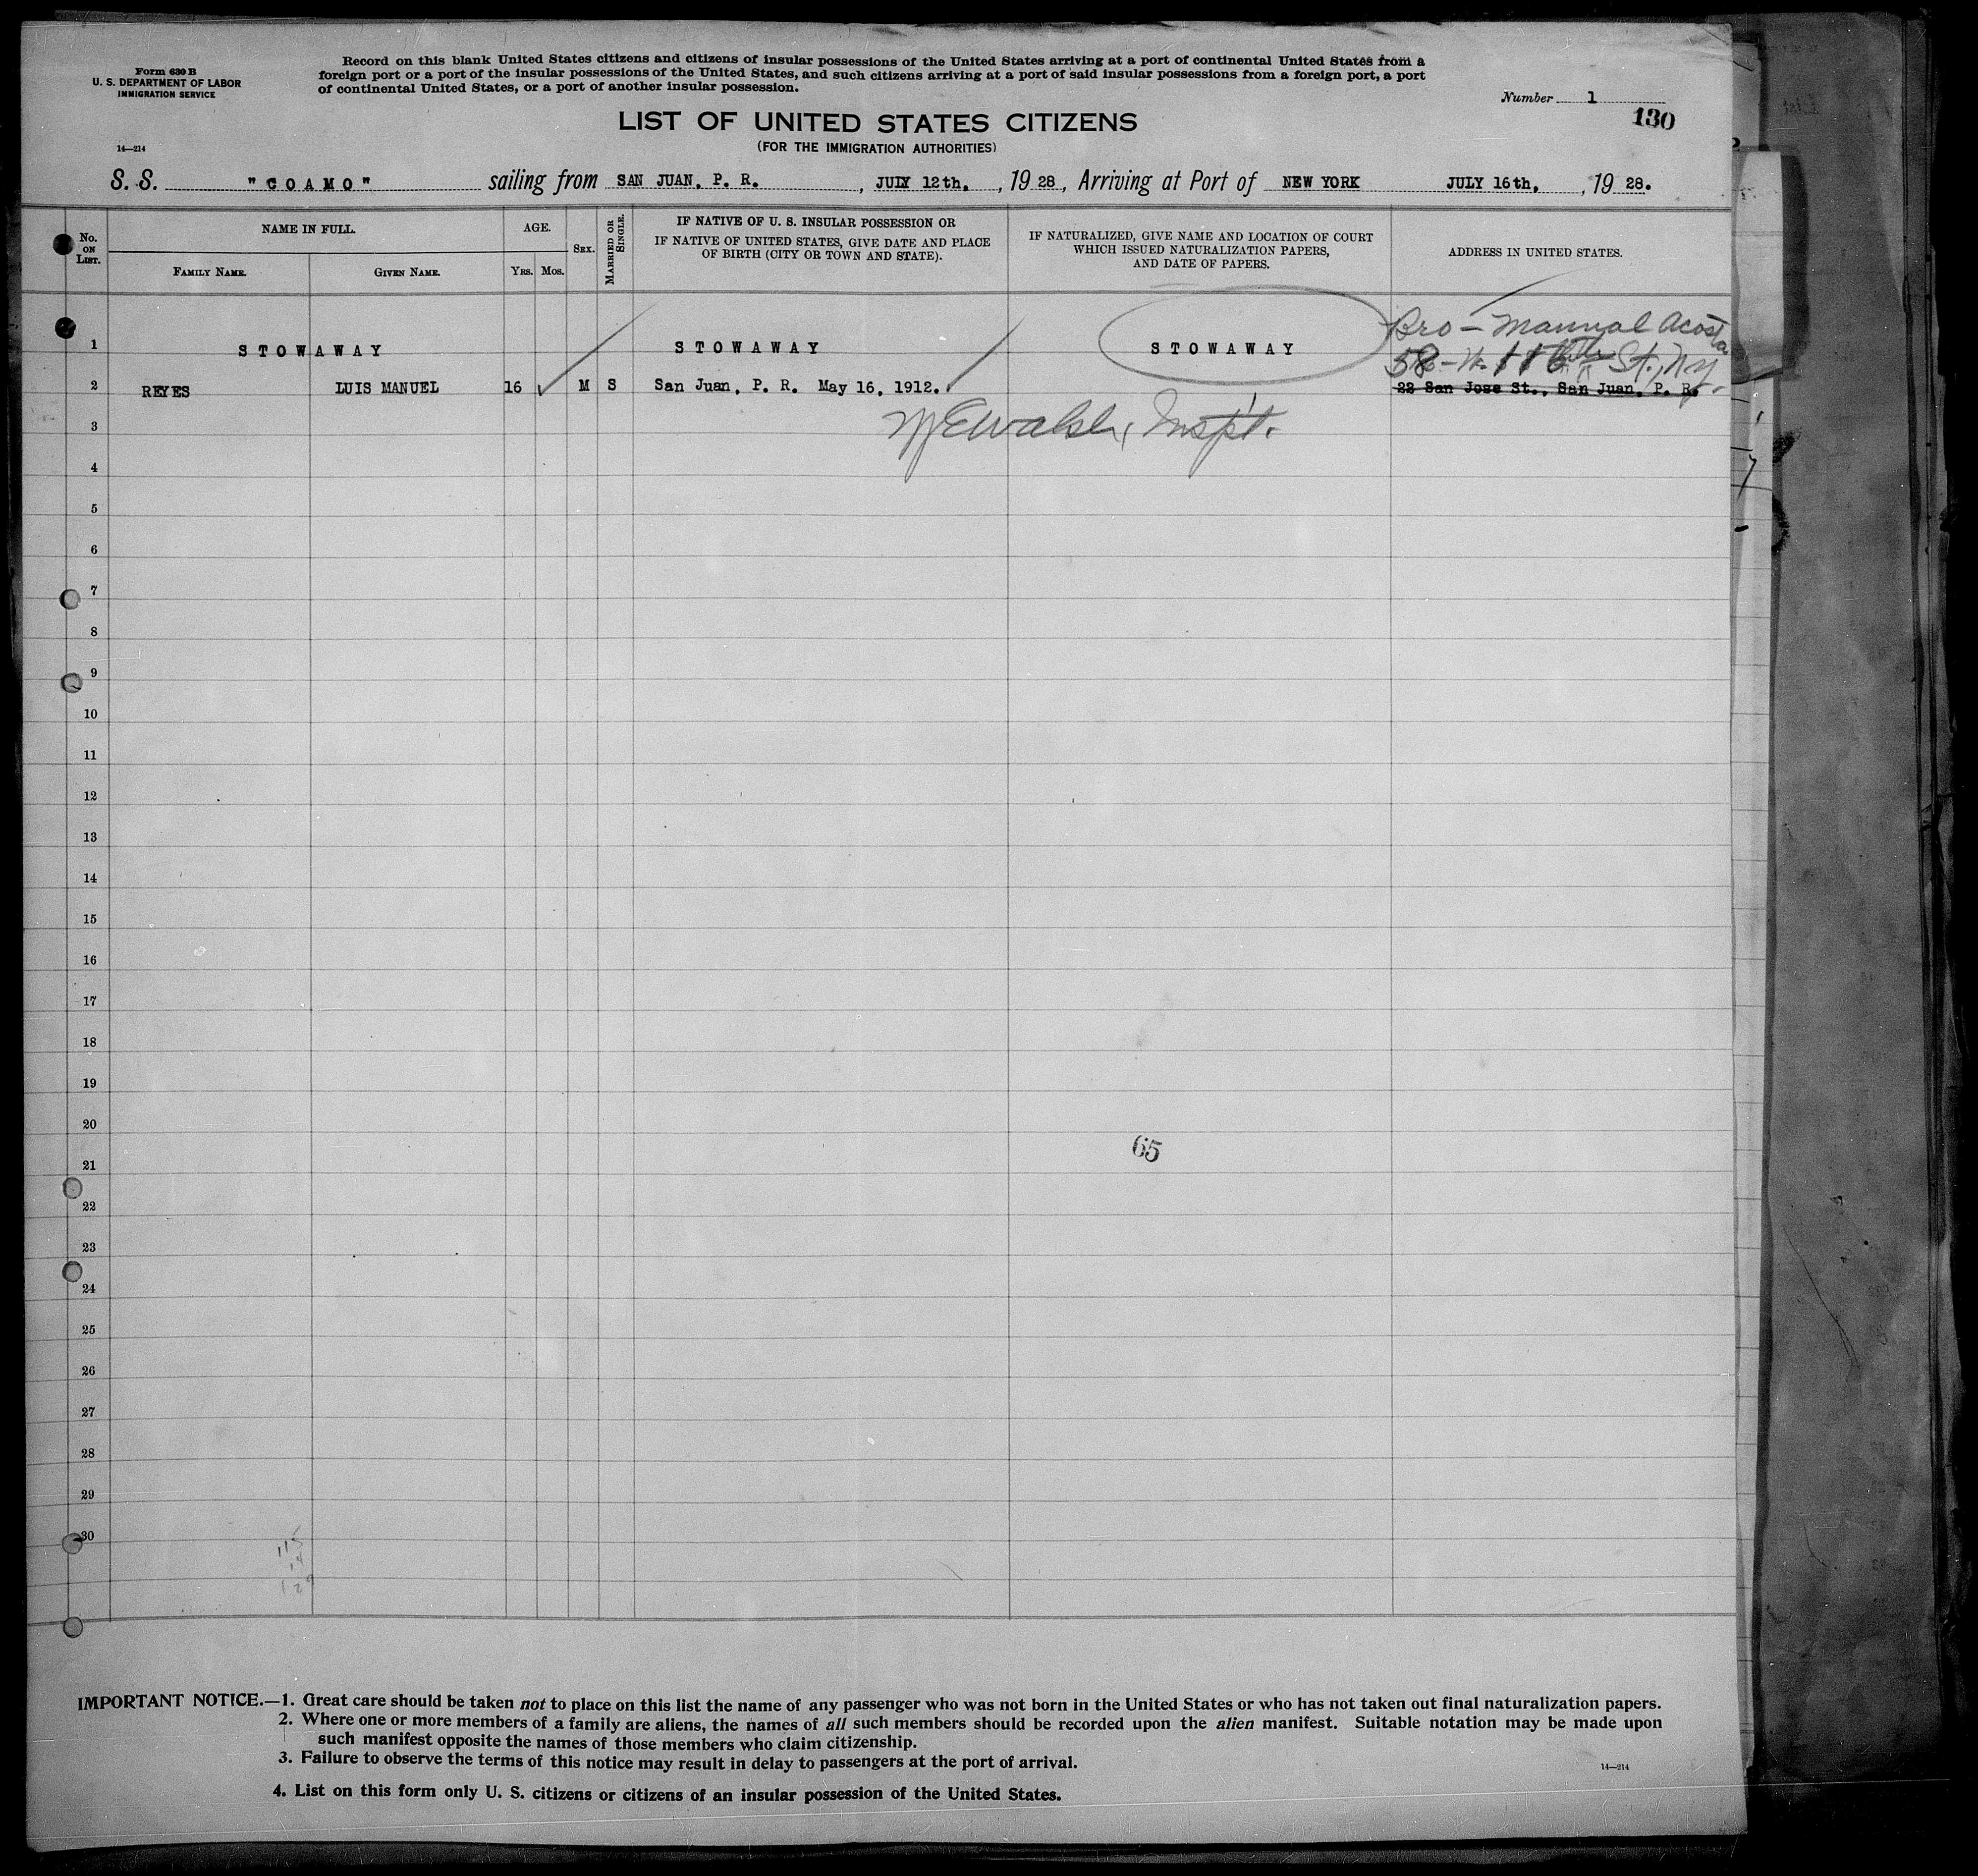 Form 630 B
U. S. DEPARTMENT OF LABOR
IMMIGRATION SERVICE
14—214
Record on this blank United States citizens and citizens of insular possessions of the United States arriving at a port of continental United States from a
foreign port or a port of the insular possessions of the United States, and such citizens arriving at a port of said insular possessions from a foreign port, a port
of continental United States, or a port of another insular possession.
Number 1
130
LIST OF UNITED STATES CITIZENS
(FOR THE IMMIGRATION AUTHORITIES)
S. S. "COAMO" sailing from SAN JUAN, P. R., JULY 12th, 1928, Arriving at Port of NEW YORK JULY 16th, 1928.
No. ON LIST.
NAME IN FULL.
FAMILY NAME.
GIVEN NAME.
AGE.
YRS. MOS.
SEX.
MARRIED OR SINGLE.
IF NATIVE OF U. S. INSULAR POSSESSION OR
IF NATIVE OF UNITED STATES, GIVE DATE AND PLACE
OF BIRTH (CITY OR TOWN AND STATE).
IF NATURALIZED, GIVE NAME AND LOCATION OF COURT
WHICH ISSUED NATURALIZATION PAPERS,
AND DATE OF PAPERS.
ADDRESS IN UNITED STATES.
Bro — Manual Acosta
1 STOWAWAY STOWAWAY STOWAWAY
58 - W. 116th St., N.Y.
2 REYES LUIS MANUEL 16 M S San Juan, P. R. May 16, 1912. 22 San Jose St., San Juan, P. R.
3 Walsh, Insp't.
4
5
6
7
8
9
10
11
12
13
14
15
16
17
18
19
20
65
21
22
23
24
25
26
27
28
29
30
115
14
129
IMPORTANT NOTICE.—1. Great care should be taken not to place on this list the name of any passenger who was not born in the United States or who has not taken out final naturalization papers.
2. Where one or more members of a family are aliens, the names of all such members should be recorded upon the alien manifest. Suitable notation may be made upon
such manifest opposite the names of those members who claim citizenship.
3. Failure to observe the terms of this notice may result in delay to passengers at the port of arrival.
14—214
4. List on this form only U. S. citizens or citizens of an insular possession of the United States.